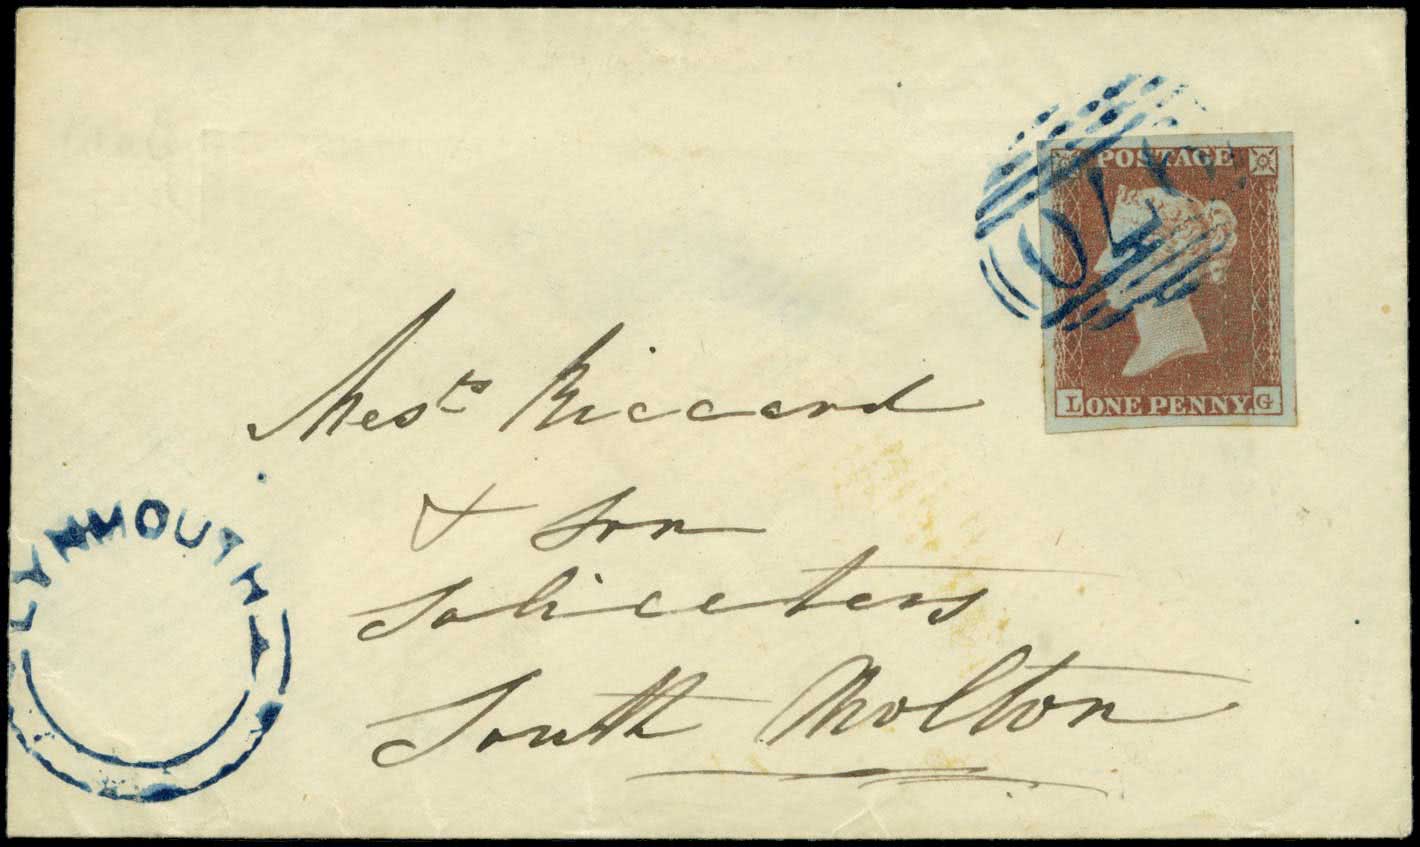 POSTAGE
L ONE PENNY. G
Mess.rs Riccard
& Son
Solicitors
South Molton
LYNMOUTH